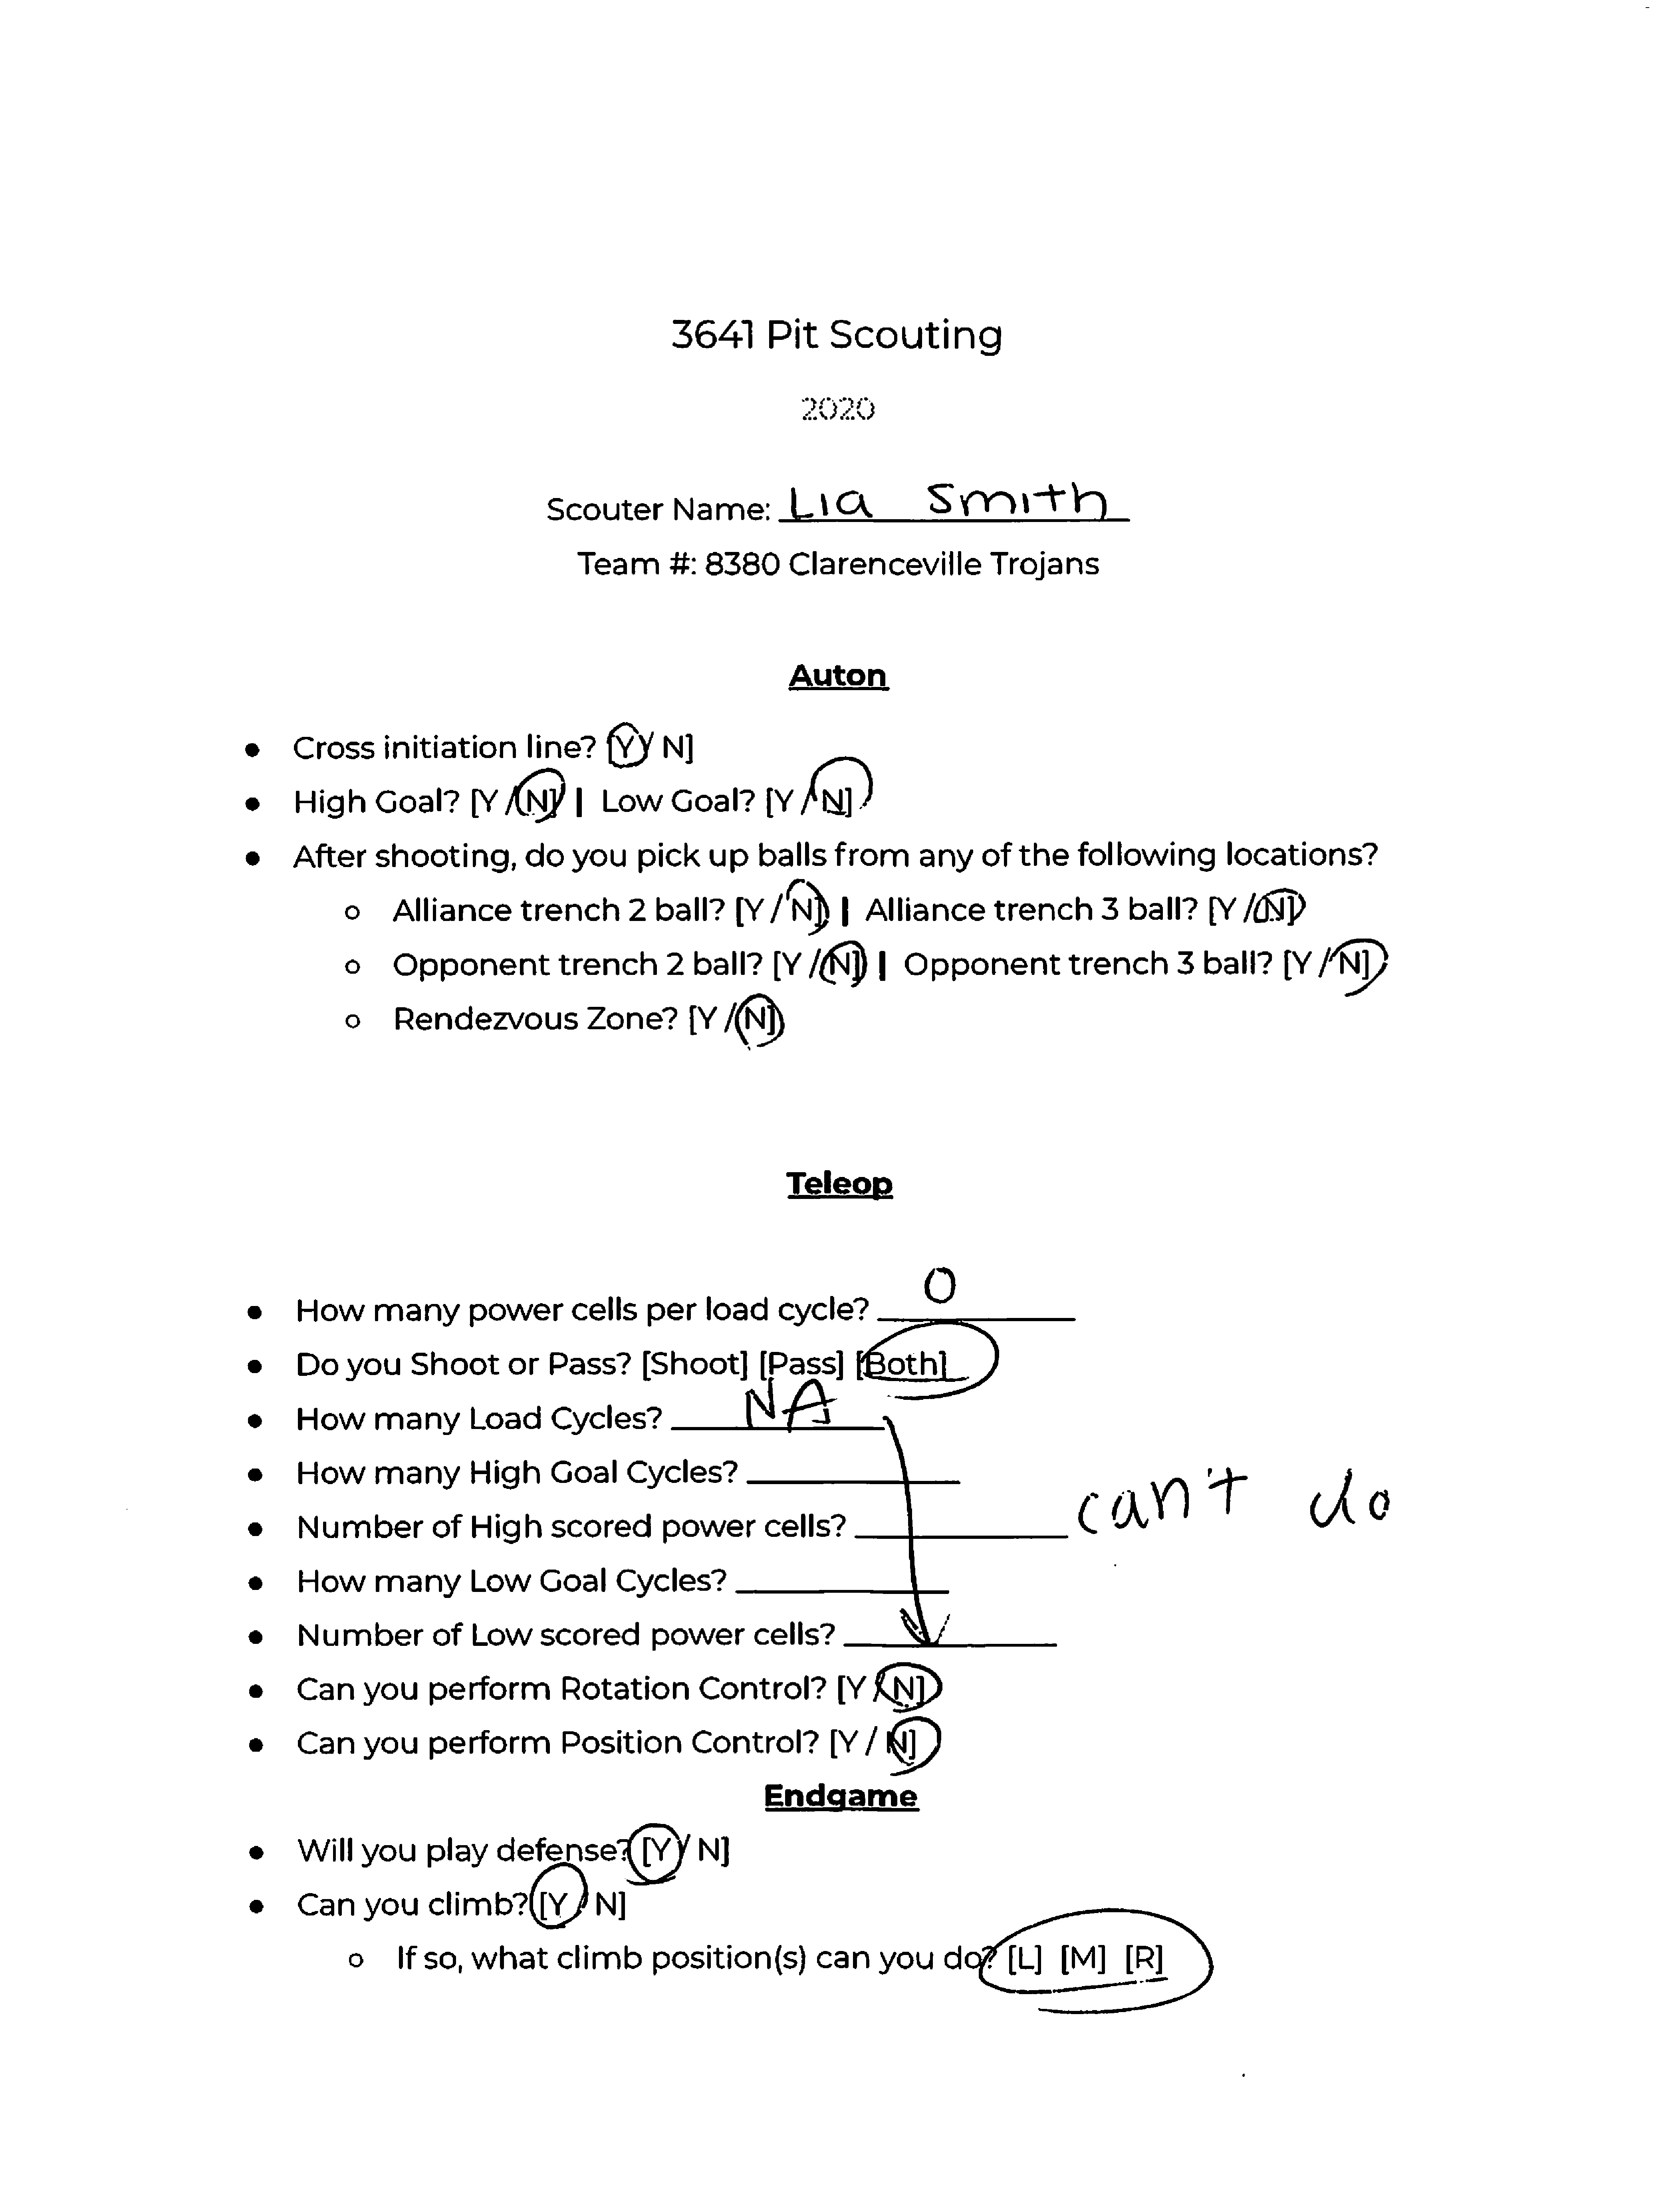 3641 Pit Scouting
2020
Scouter Name: Lia Smith
Team #: 8380 Clarenceville Trojans
Auton
● Cross initiation line? [Y / N]
● High Goal? [Y / N] | Low Goal? [Y / N]
● After shooting, do you pick up balls from any of the following locations?
○ Alliance trench 2 ball? [Y / N] | Alliance trench 3 ball? [Y / N]
○ Opponent trench 2 ball? [Y / N] | Opponent trench 3 ball? [Y / N]
○ Rendezvous Zone? [Y / N]
Teleop
● How many power cells per load cycle? 0
● Do you Shoot or Pass? [Shoot] [Pass] [Both]
● How many Load Cycles? NA
● How many High Goal Cycles?
● Number of High scored power cells? can't do
● How many Low Goal Cycles?
● Number of Low scored power cells?
● Can you perform Rotation Control? [Y / N]
● Can you perform Position Control? [Y / N]
Endgame
● Will you play defense? [Y / N]
● Can you climb? [Y / N]
○ If so, what climb position(s) can you do? [L] [M] [R]